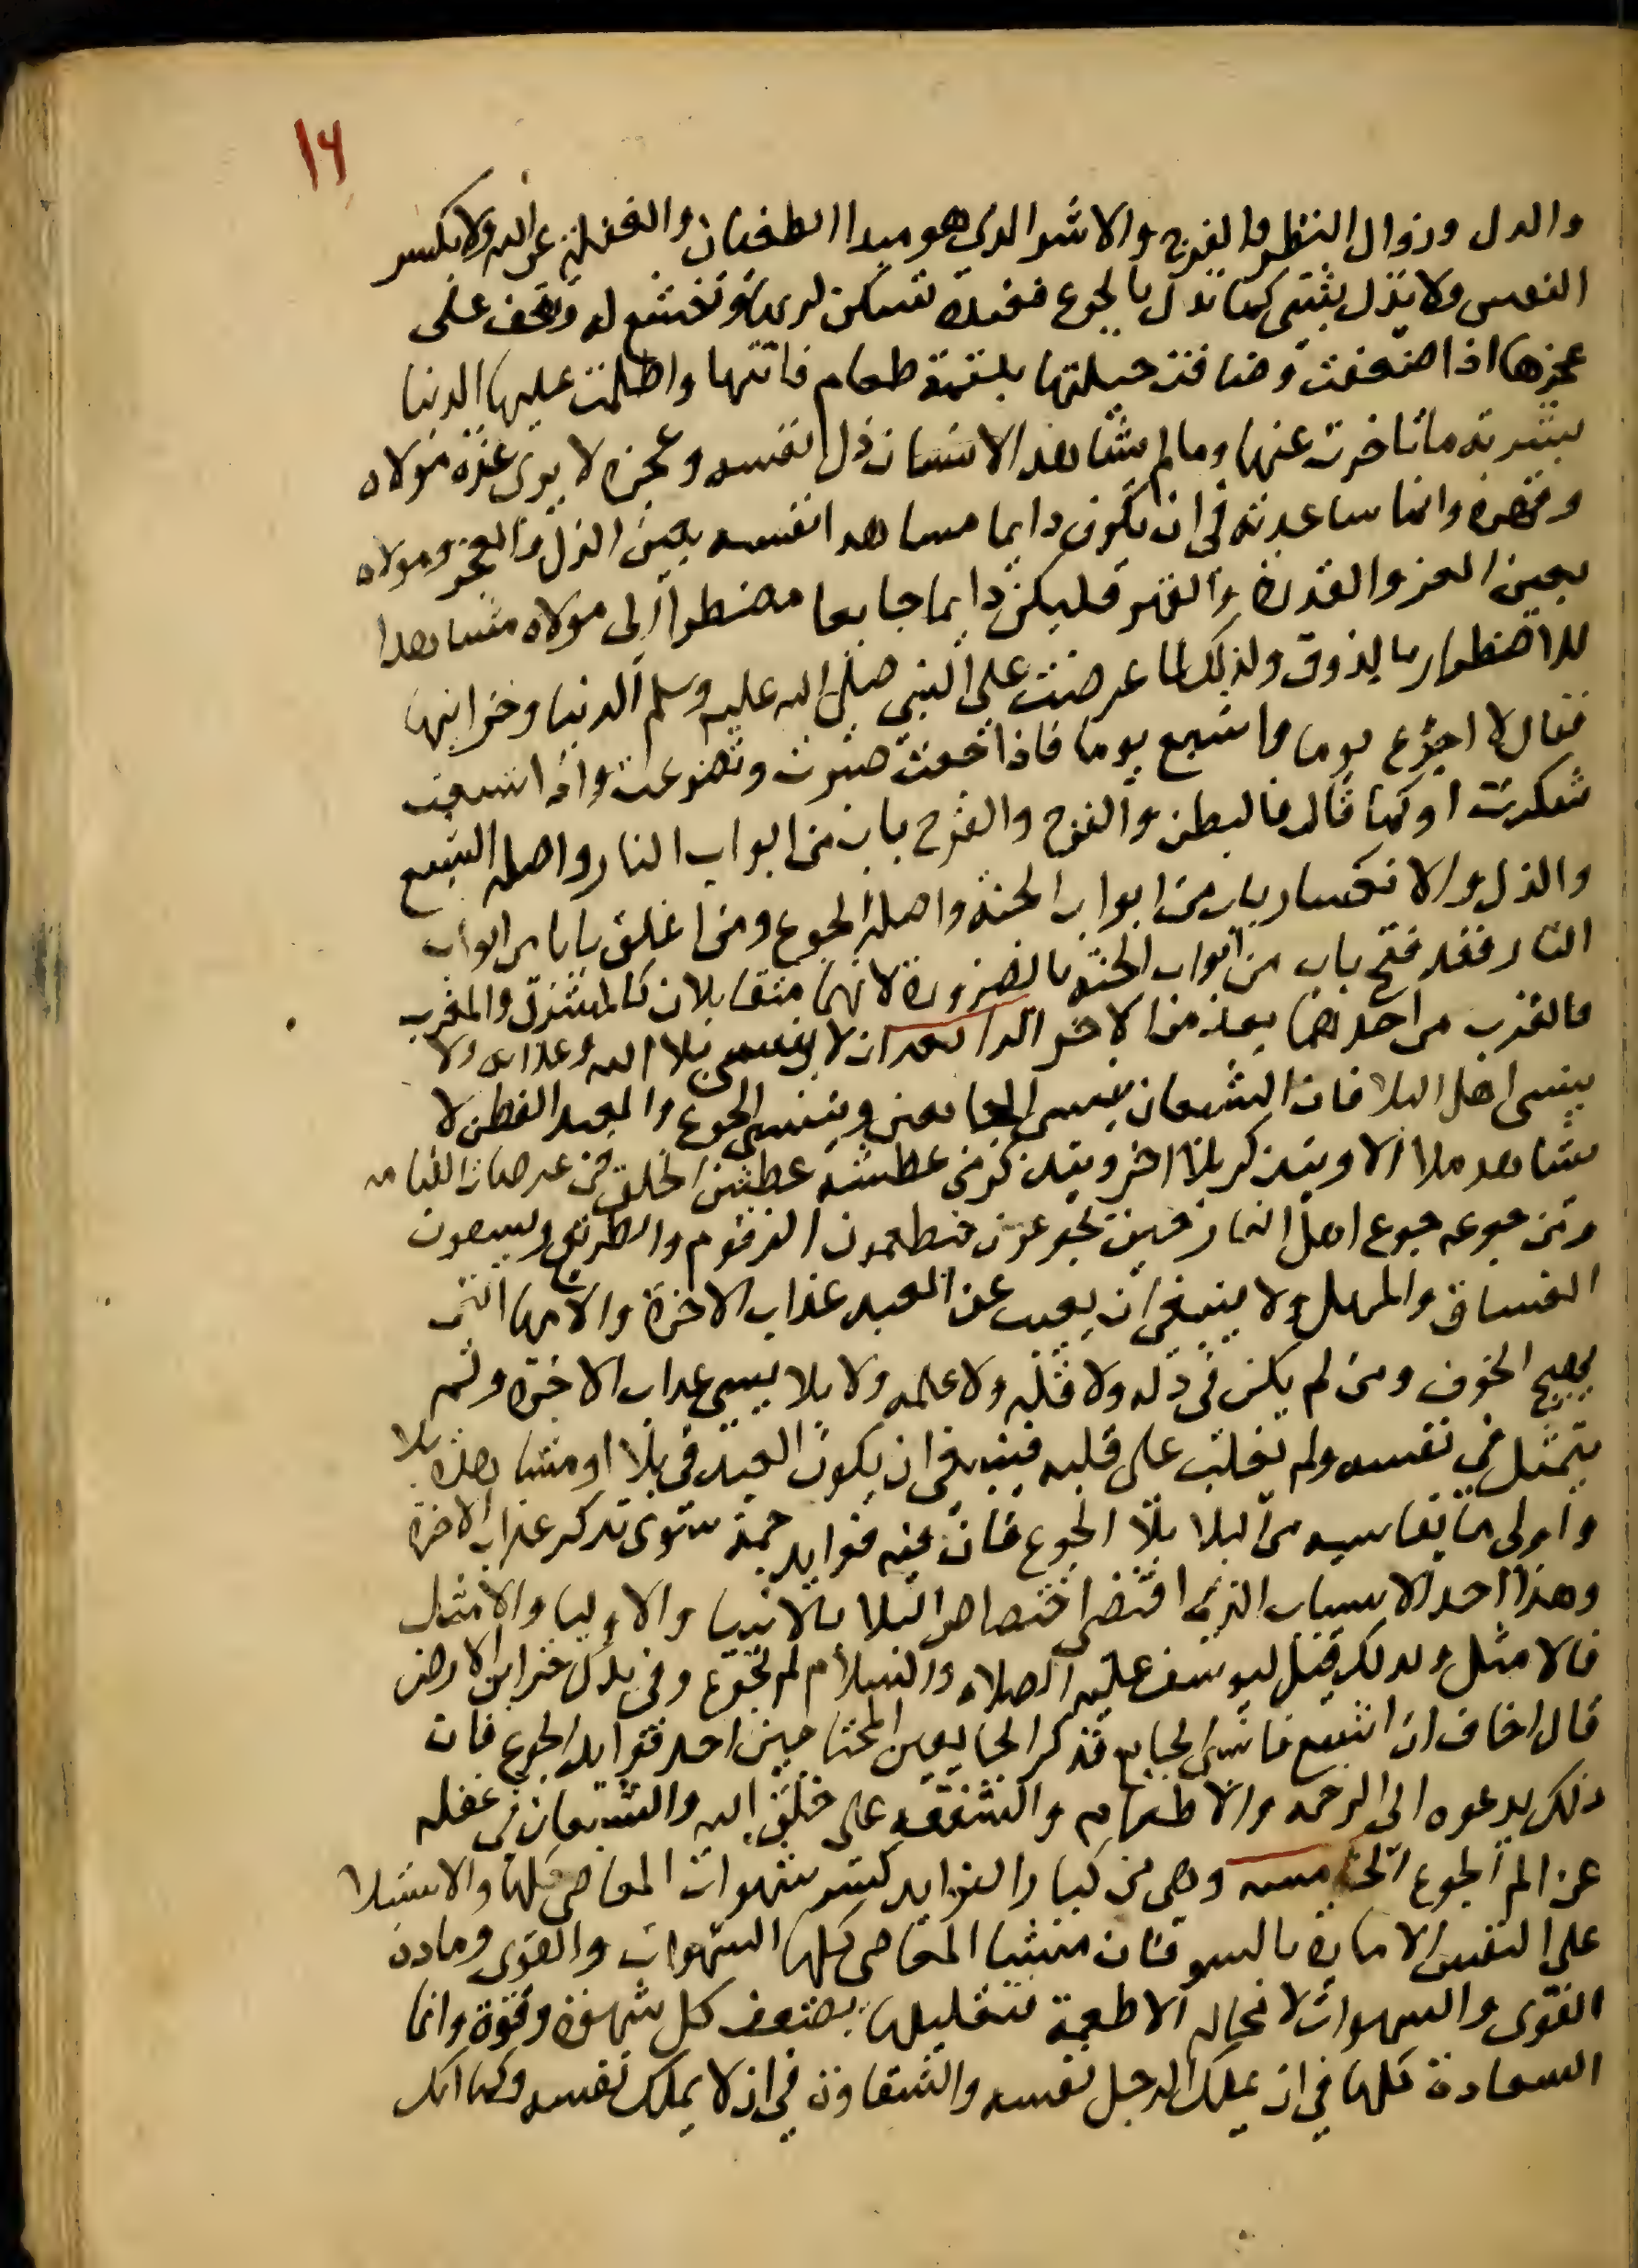 ١٤
والدل وزوال النظر والفرح والاشر الدى هو مبدا الطغيان والغفلة عن الله ولا تكسر
النفس ولا تذل بشى كما تدل بالجوع فعنده تسكن لربها وتخشع له وتقف على
عجزها اذا ضعفت وضاقت حيلتها بلقمة طعام فاتتها واظلمت عليها الدنيا
بشربة ما تاخرت عنها وما لم يشاهد الانسان ذل نفسه وعجزه لا يرى عزة مولاه
وقهره وانما سعادته فى ان يكون دايما مساهدا نفسه بعين الذل والعجز ومولاه
بعين العز والقدرة والقهر فليكن دايما جايعا مضطرا الى مولاه مشاهدا
للاضطرار بالذوق ولذلك لما عرضت على النبي صلى الله عليه وسلم الدنيا وخزاينها
فقال لا اجوع يوما واشبع يوما فاذا جعت صبرت وتضرعت واذا شبعت
شكرت او كما قال فالبطن والفرج والفرج باب من ابواب النار واصله الشبع
والذل والانكسار باب من ابواب الجنة واصله الجوع ومن اغلق بابا من ابواب
النار فقد فتح باب من ابواب الجنة بالضرورة لانهما متقابلان كالمشرق والمغرب
فالقرب من احدهما بعد من الاخر الرابعة ان لا ينسى بلا الله وعذابه ولا
ينسى اهل البلا فان الشبعان ينسى الجايعين وينسى الجوع والعبد الفطن لا
يشاهد بلاا الا ويتذكر بلاا اخر ويتذكر من عطشه عطش الخلق فى عرصات القيامه
ومن جوعه جوع اهل النار حين يجوعون فيطعمون الزقوم والضريع ويسقون
الغساق والمهل ولا ينبغى ان يغيب عن العبد عذاب الاخرة والامها التى
يهيج الخوف ومن لم يكن فى ذله ولا قله ولا علمه ولا بلا ينسى عداب الاخرة ولم
يتمثل فى نفسه ولم تغلب على قلبه فينبغى ان يكون العبد فى بلا او مشاهدة بلا
واولى ما يقاسيه من البلا بلا الجوع فان فيه فوايد جمة سوى تذكر عذاب الاخرة
وهذا احد الاسباب الذى اقتضى اختصاص البلا بالانبيا والاوليا والامثل
فالامثل ولدلك قيل ليوسف عليه الصلاه والسلام لم تجوع وفى يدك خزاين الارض
قال اخاف ان اشبع فانسى الجايع فذكر الجايعين المحتاجين احد فوايد الجوع فان
ذلك يدعوه الى الرحمه والاطعام والشفقه على خلق الله والشبعان فى غفله
عن الم الجوع الخامسه وهى من كبار الفوايد كسر شهوات المعاصى كلها والاستيلا
على النفس الامارة بالسو فان منشا المعاصى كلها الشهوات والقوى ومادة
القوى والشهوات لا محاله الاطعمة فتقليلها يضعف كل شهوة وقوة وانما
السعادة كلها فى ان يملك الرجل نفسه والشقاوة فى ان لا يملك نفسه وكما انك